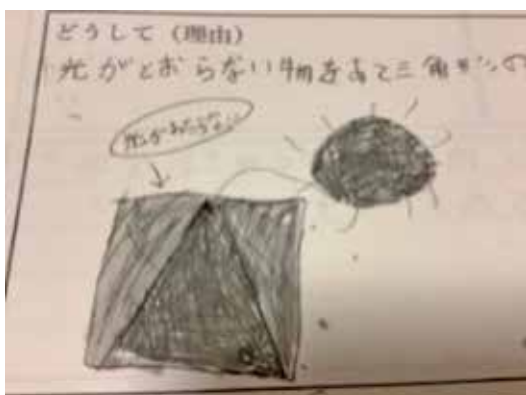 どうして（理由）
光がとおらない物をあて三角形の
光がとおらない